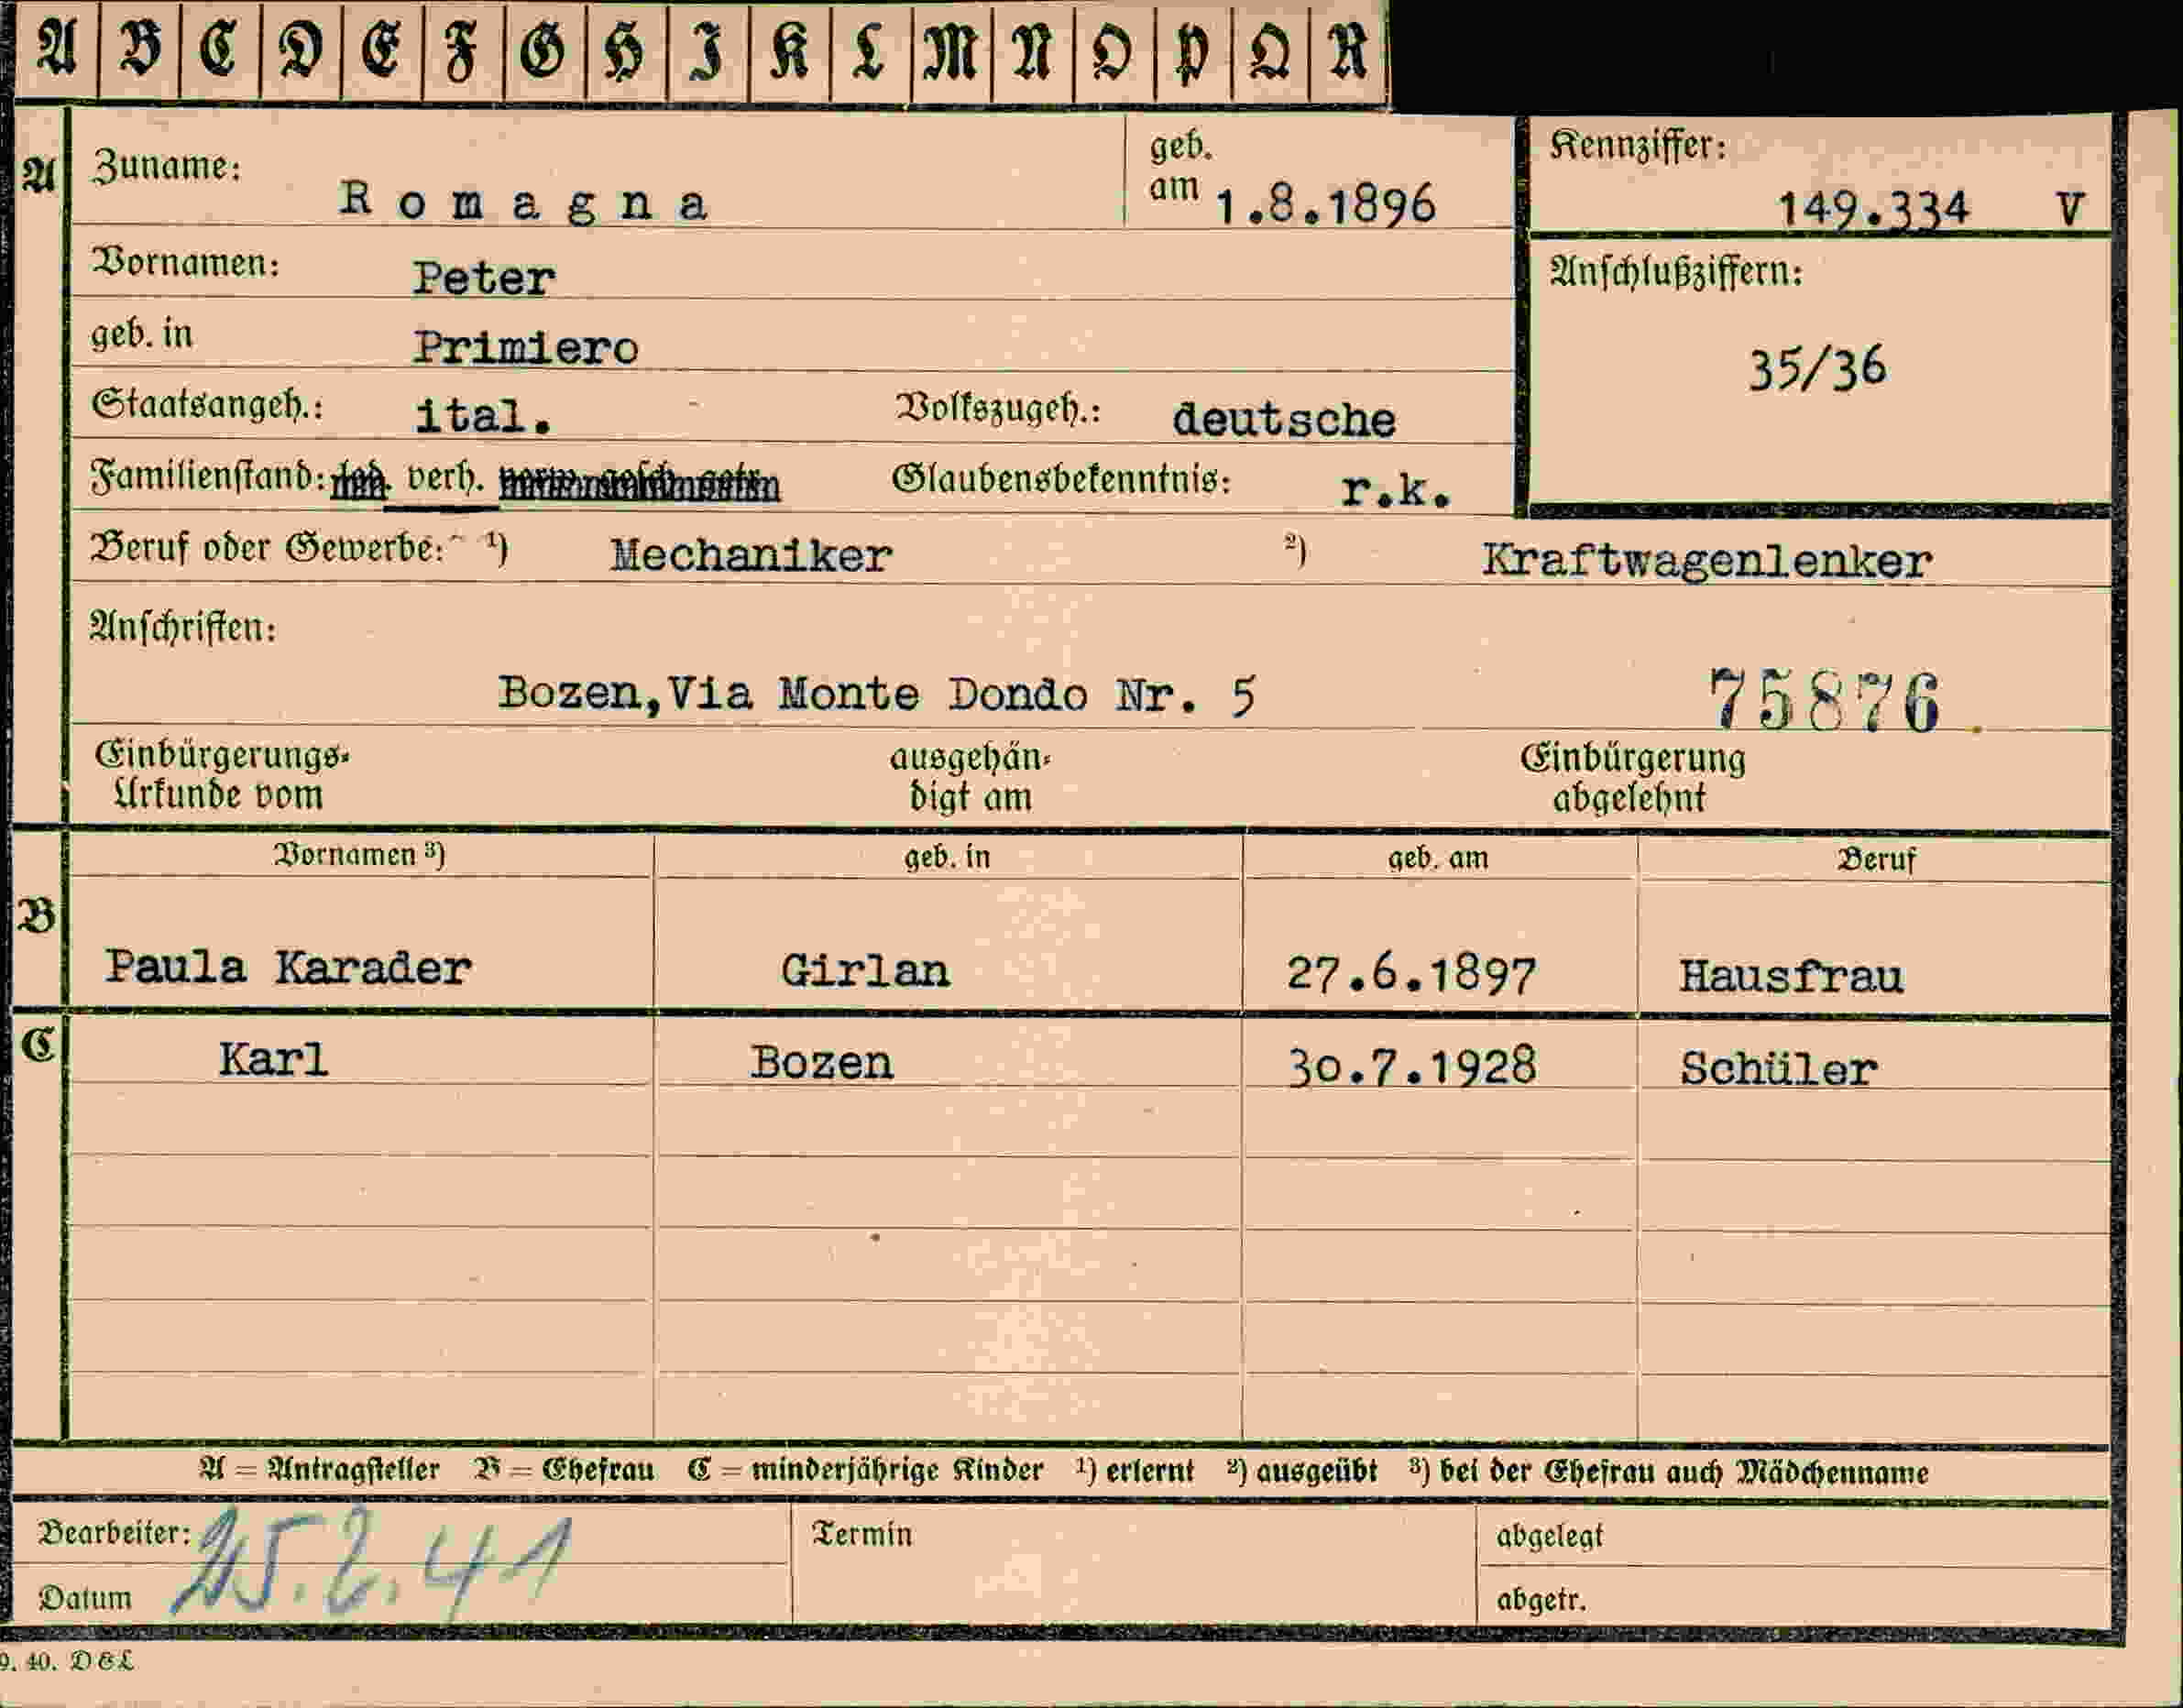 A B C D E F G H I K L M N O P Q R
A Zuname: Romagna geb. am 1.8.1896 Kennziffer: 149.334 V
Vornamen: Peter Anschlußziffern:
geb. in Primiero 35/36
Staatsangeh.: ital. Volkszugeh.: deutsche
Familienstand: led. verh. Glaubensbekenntnis: r.k.
Beruf oder Gewerbe: 1) Mechaniker 2) Kraftwagenlenker
Anschriften:
Bozen,Via Monte Dondo Nr. 5 75876
Einbürgerungs- ausgehän- Einbürgerung
Urkunde vom digt am abgelehnt
Vornamen 3) geb. in geb. am Beruf
B Paula Karader Girlan 27.6.1897 Hausfrau
C Karl Bozen 30.7.1928 Schüler
A = Antragsteller B = Ehefrau C = minderjährige Kinder 1) erlernt 2) ausgeübt 3) bei der Ehefrau auch Mädchenname
Bearbeiter: Termin abgelegt
25.2.41
Datum abgetr.
9. 40. D&L